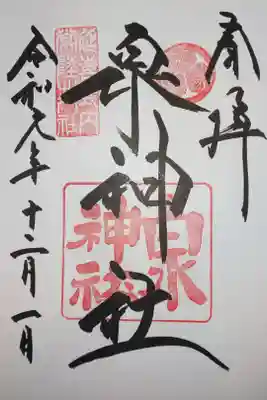 奉拝
泉神社
泉
神社
延喜式内
令和元年十二月一日